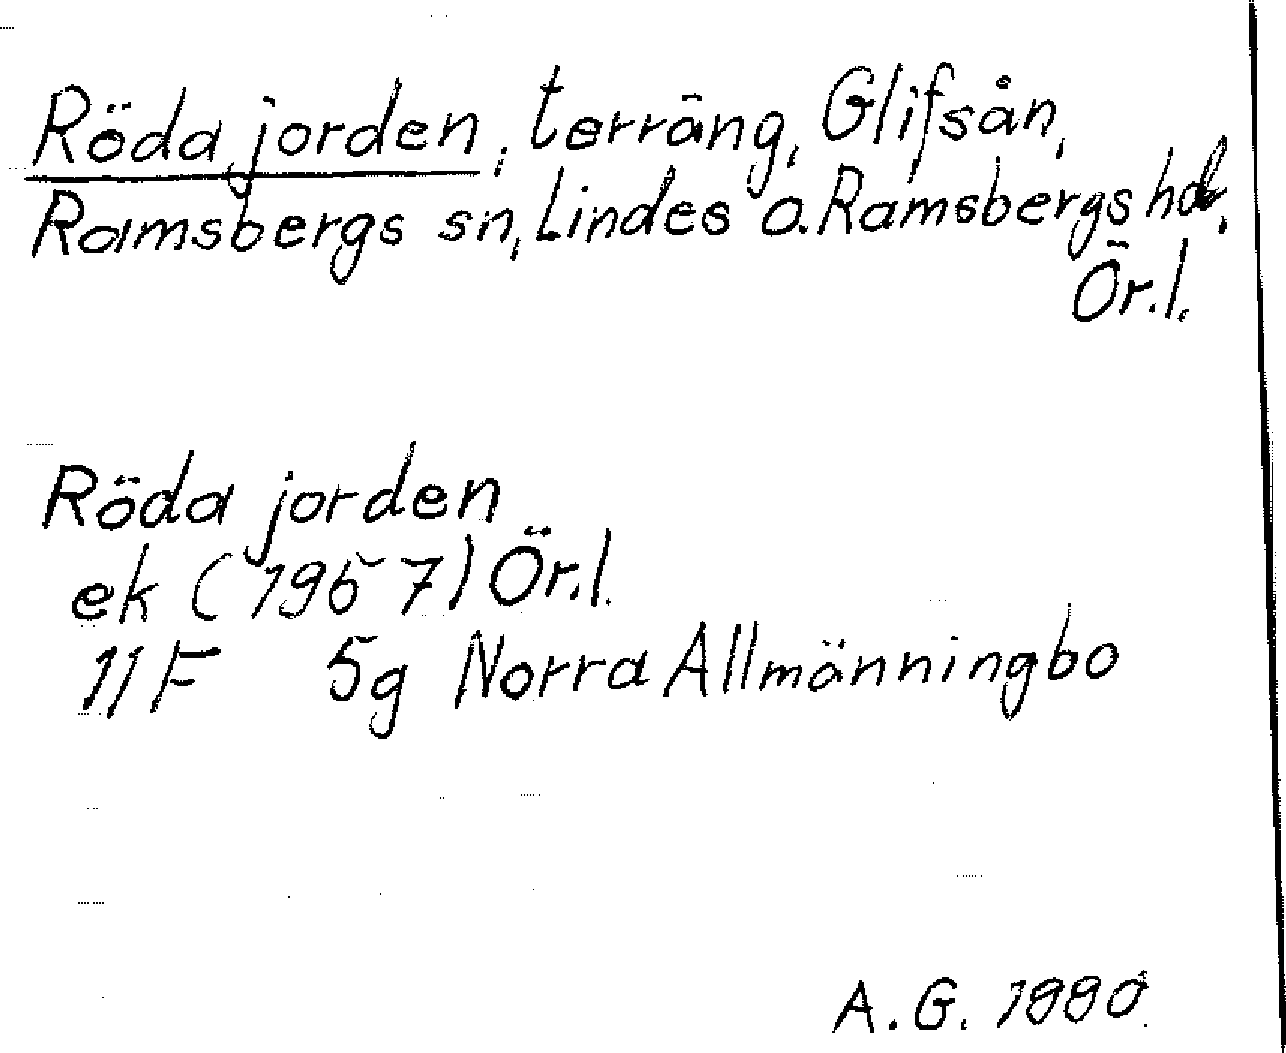 Röda jorden, terräng, Glifsån,
Ramsbergs sn, Lindes o. Ramsbergs hd.
Ör.l.
Röda jorden
ek (1957) Ör.l.
11F 5g Norra Allmänningbo
A.G. 1980